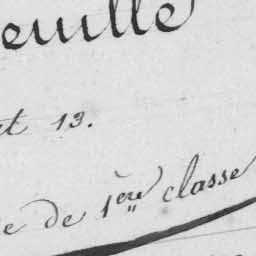 euille
t 13.
e de 1ère classe